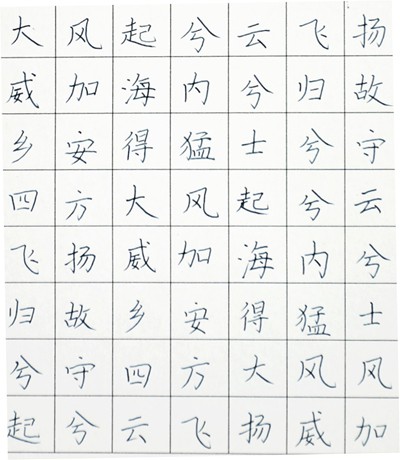 大风起兮云飞扬
威加海内兮归故
乡安得猛士兮守
四方大风起兮云
飞扬威加海内兮
归故乡安得猛士
兮守四方大风风
起兮云飞扬威加